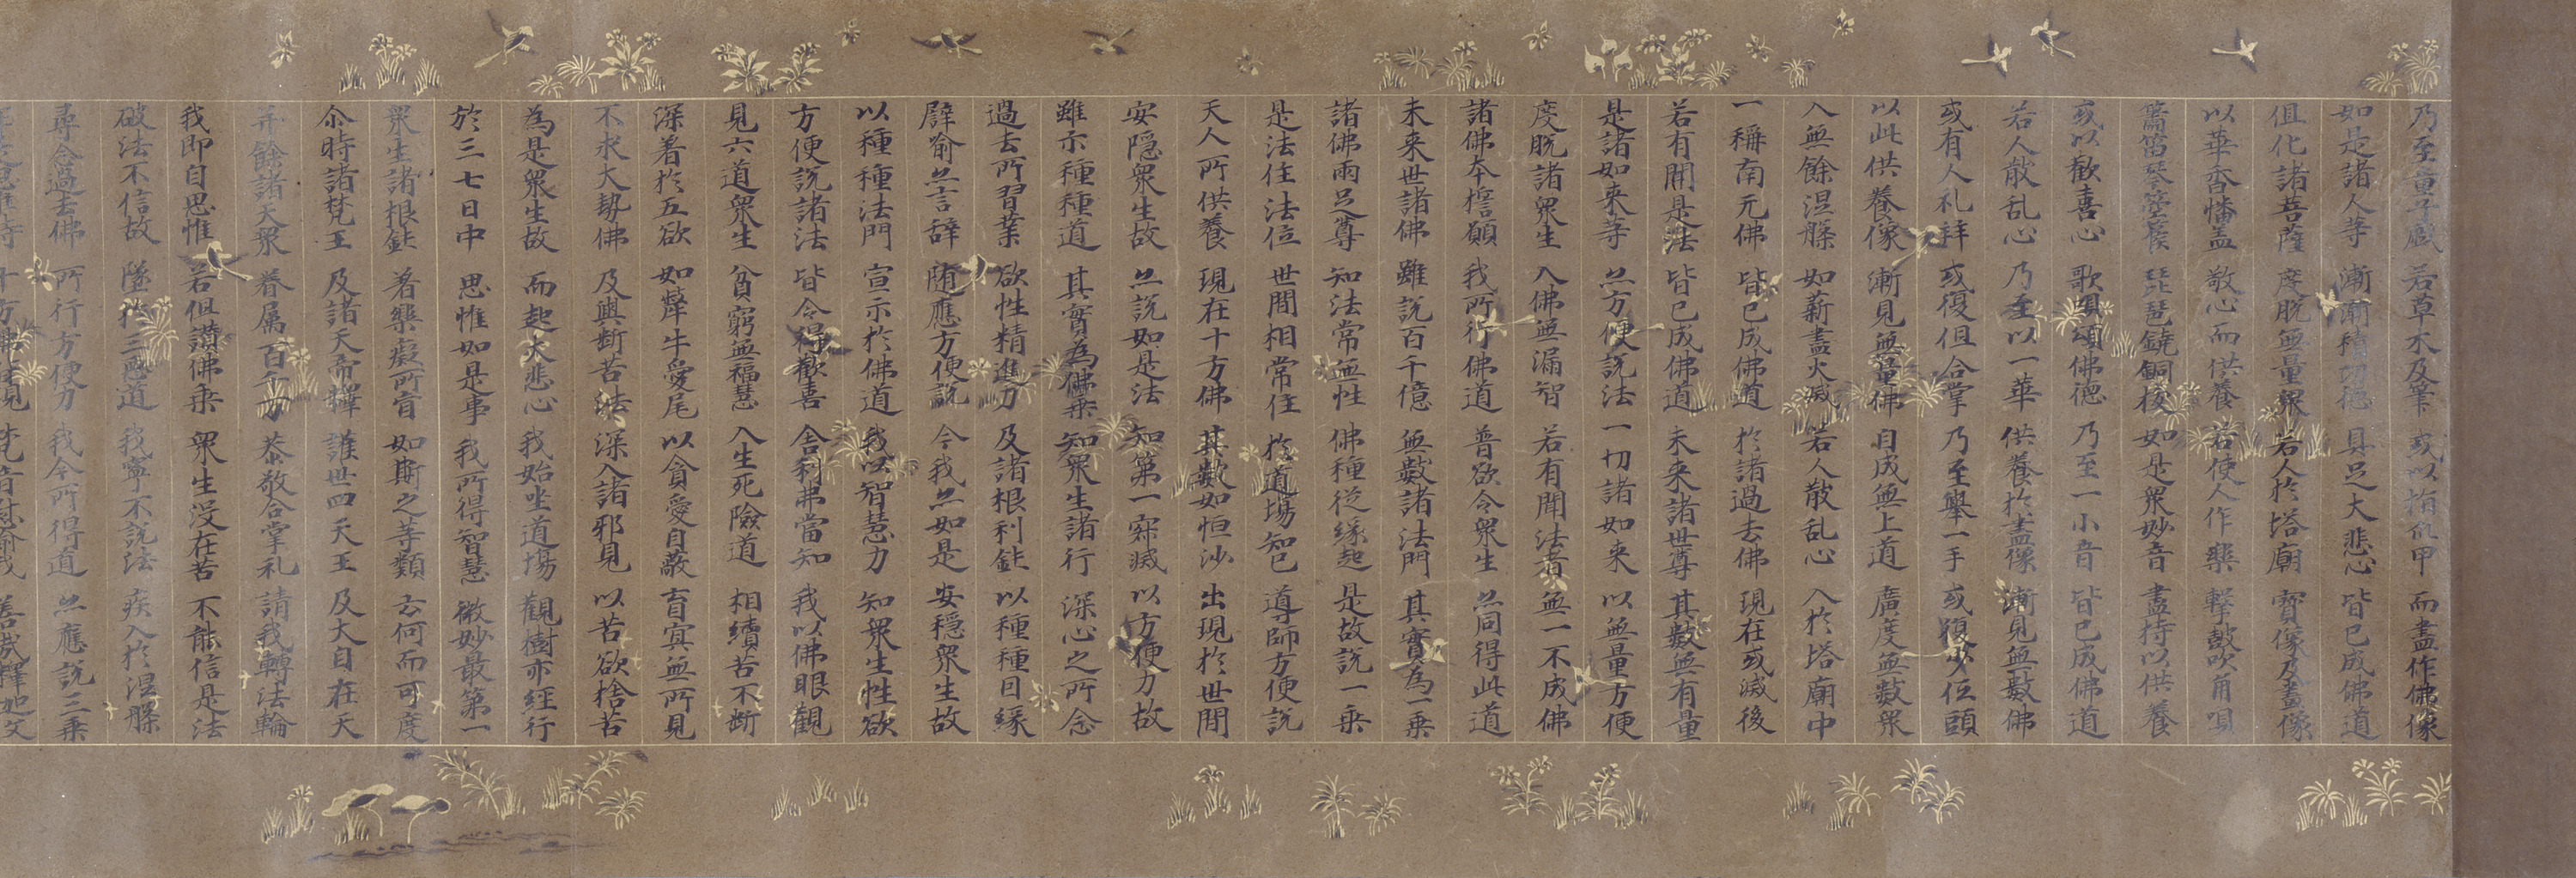 乃至童子戲 若草木及筆 或以指爪甲 而畫作佛像
如是諸人等 漸漸積功德 具足大悲心 皆已成佛道
但化諸菩薩 度脫無量眾 若人於塔廟 寶像及畫像
以華香幡盖 敬心而供養 若使人作樂 擊鼓吹角唄
簫笛琴箜篌 琵琶鐃銅撥 如是眾妙音 盡持以供養
或以歡喜心 歌唄頌佛德 乃至一小音 皆已成佛道
若人散乱心 乃至以一華 供養於畫像 漸見無數佛
或有人礼拜 或復但合掌 乃至舉一手 或復少低頭
以此供養像 漸見無量佛 自成無上道 廣度無數眾
入無餘涅槃 如薪盡火滅 若人散乱心 入於塔廟中
一稱南无佛 皆已成佛道 於諸過去佛 現在或滅後
若有聞是法 皆已成佛道 未來諸世尊 其數無有量
是諸如來等 亦方便說法 一切諸如來 以無量方便
度脫諸眾生 入佛無漏智 若有聞法者 無一不成佛
諸佛本擔願 我所行佛道 普欲令眾生 亦同得此道
未來世諸佛 雖說百千億 無數諸法門 其實為一乗
諸佛兩足尊 知法常無性 佛種從緣起 是故說一乗
是法住法位 世間相常住 於道場知已 導師方便說
天人所供養 現在十方佛 其數如恒沙 出現於世間
安隱眾生故 亦說如是法 知第一寂滅 以方便力故
雖示種種道 其實為佛乗 知眾生諸行 深心之所念
過去所習業 欲性精進力 及諸根利鈍 以種種因緣
譬喻亦言辭 随應方便說 今我亦如是 安穩眾生故
以種種法門 宣示於佛道 我以智慧力 知眾生性欲
方便說諸法 皆令得歡喜 舍利弗當知 我以佛眼觀
見六道眾生 貧窮無福慧 入生死險道 相續苦不断
深著於五欲 如犛牛愛尾 以貪愛自蔽 盲冥無所見
不求大勢佛 及與断苦法 深入諸邪見 以苦欲捨苦
為是眾生故 而起大悲心 我始坐道場 觀樹亦經行
於三七日中 思惟如是事 我所得智慧 微妙最第一
眾生諸根鈍 著樂癡所盲 如斯之等類 云何而可度
尒時諸梵王 及諸天帝釋 護世四天王 及大自在天
并餘諸天眾 眷属百千万 恭敬合掌礼 請我轉法輪
我即自思惟 若但讚佛乗 眾生没在苦 不能信是法
破法不信故 墜於三惡道 我寧不說法 疾入於涅槃
尋念過去佛 所行方便力 我今所得道 亦應說三乗
作是思惟時 十方佛皆現 梵音慰喻我 善哉釋迦文